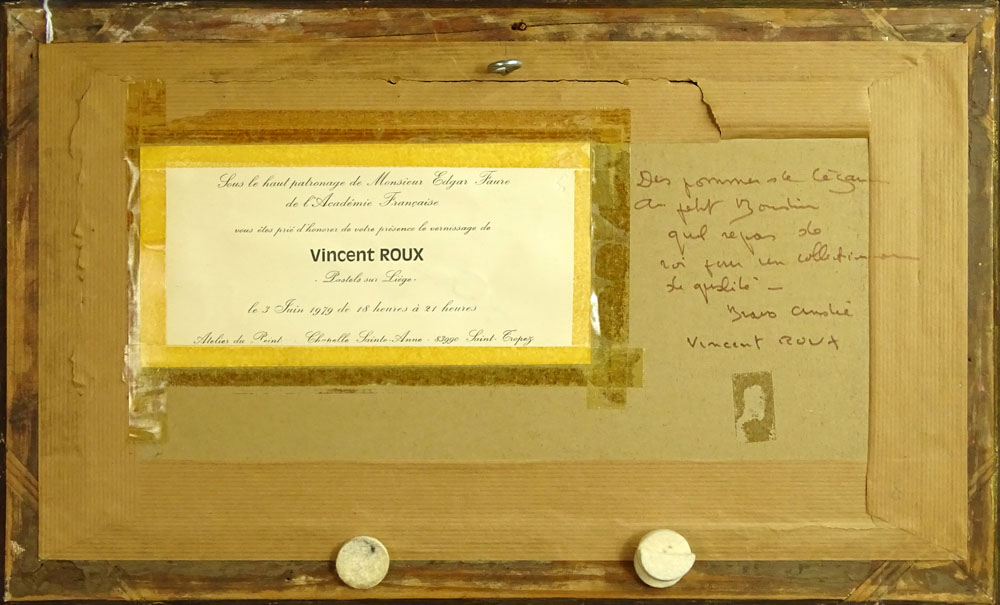 Sous le haut patronage de Monsieur Edgar Faure
de l'Académie Française
vous êtes prié d'honorer de votre présence le vernissage de
Vincent ROUX
- Pastels sur Liège -
le 3 Juin 1979 de 18 heures à 21 heures
Atelier du Point - Chapelle Sainte-Anne - 83990 Saint-Tropez
Des pommes de Cézanne
au petit Boudin
quel repas de
roi pour un collectionneur
de qualité -
Bravo
Vincent ROUX